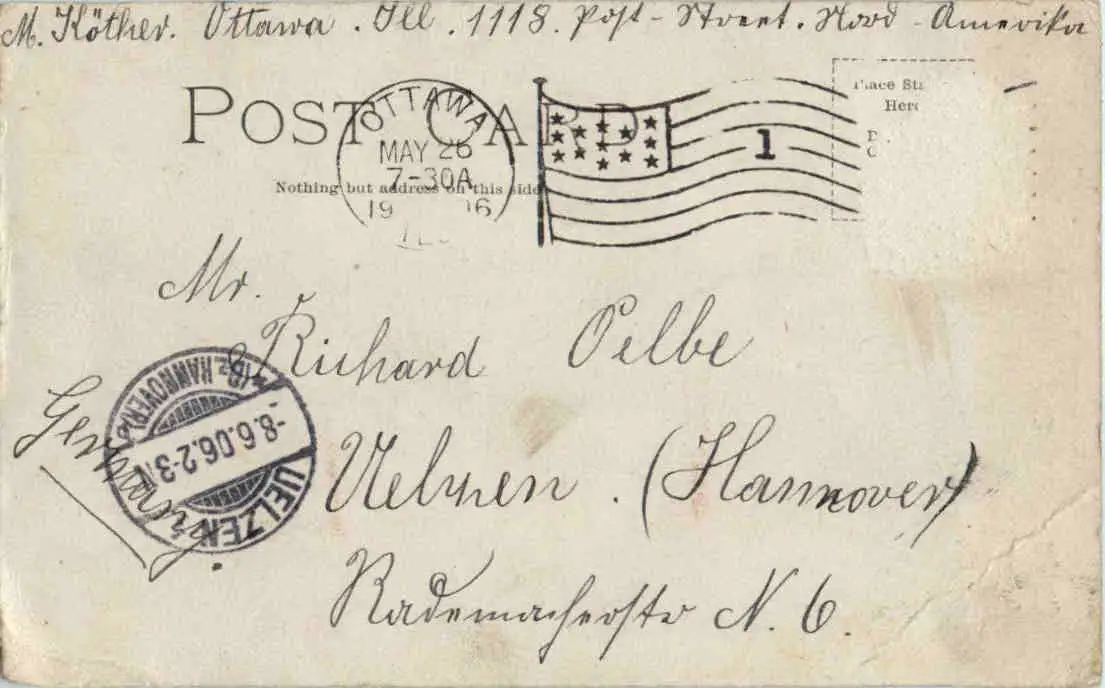 M. Köther. Ottawa. Ill. 1118. Post-Street. Nord-Amerika
Place
Here
POST CARD
OTTAWA
MAY 26
7-30A
19 06
ILL.
1
Nothing but address on this side
Mr.
Richard Oelbe
Uelzen. (Hannover)
Rademacherstr N. 6.
Germany.
UELZEN
-8.6.06.2-3N
(BZ. HANNOVER)